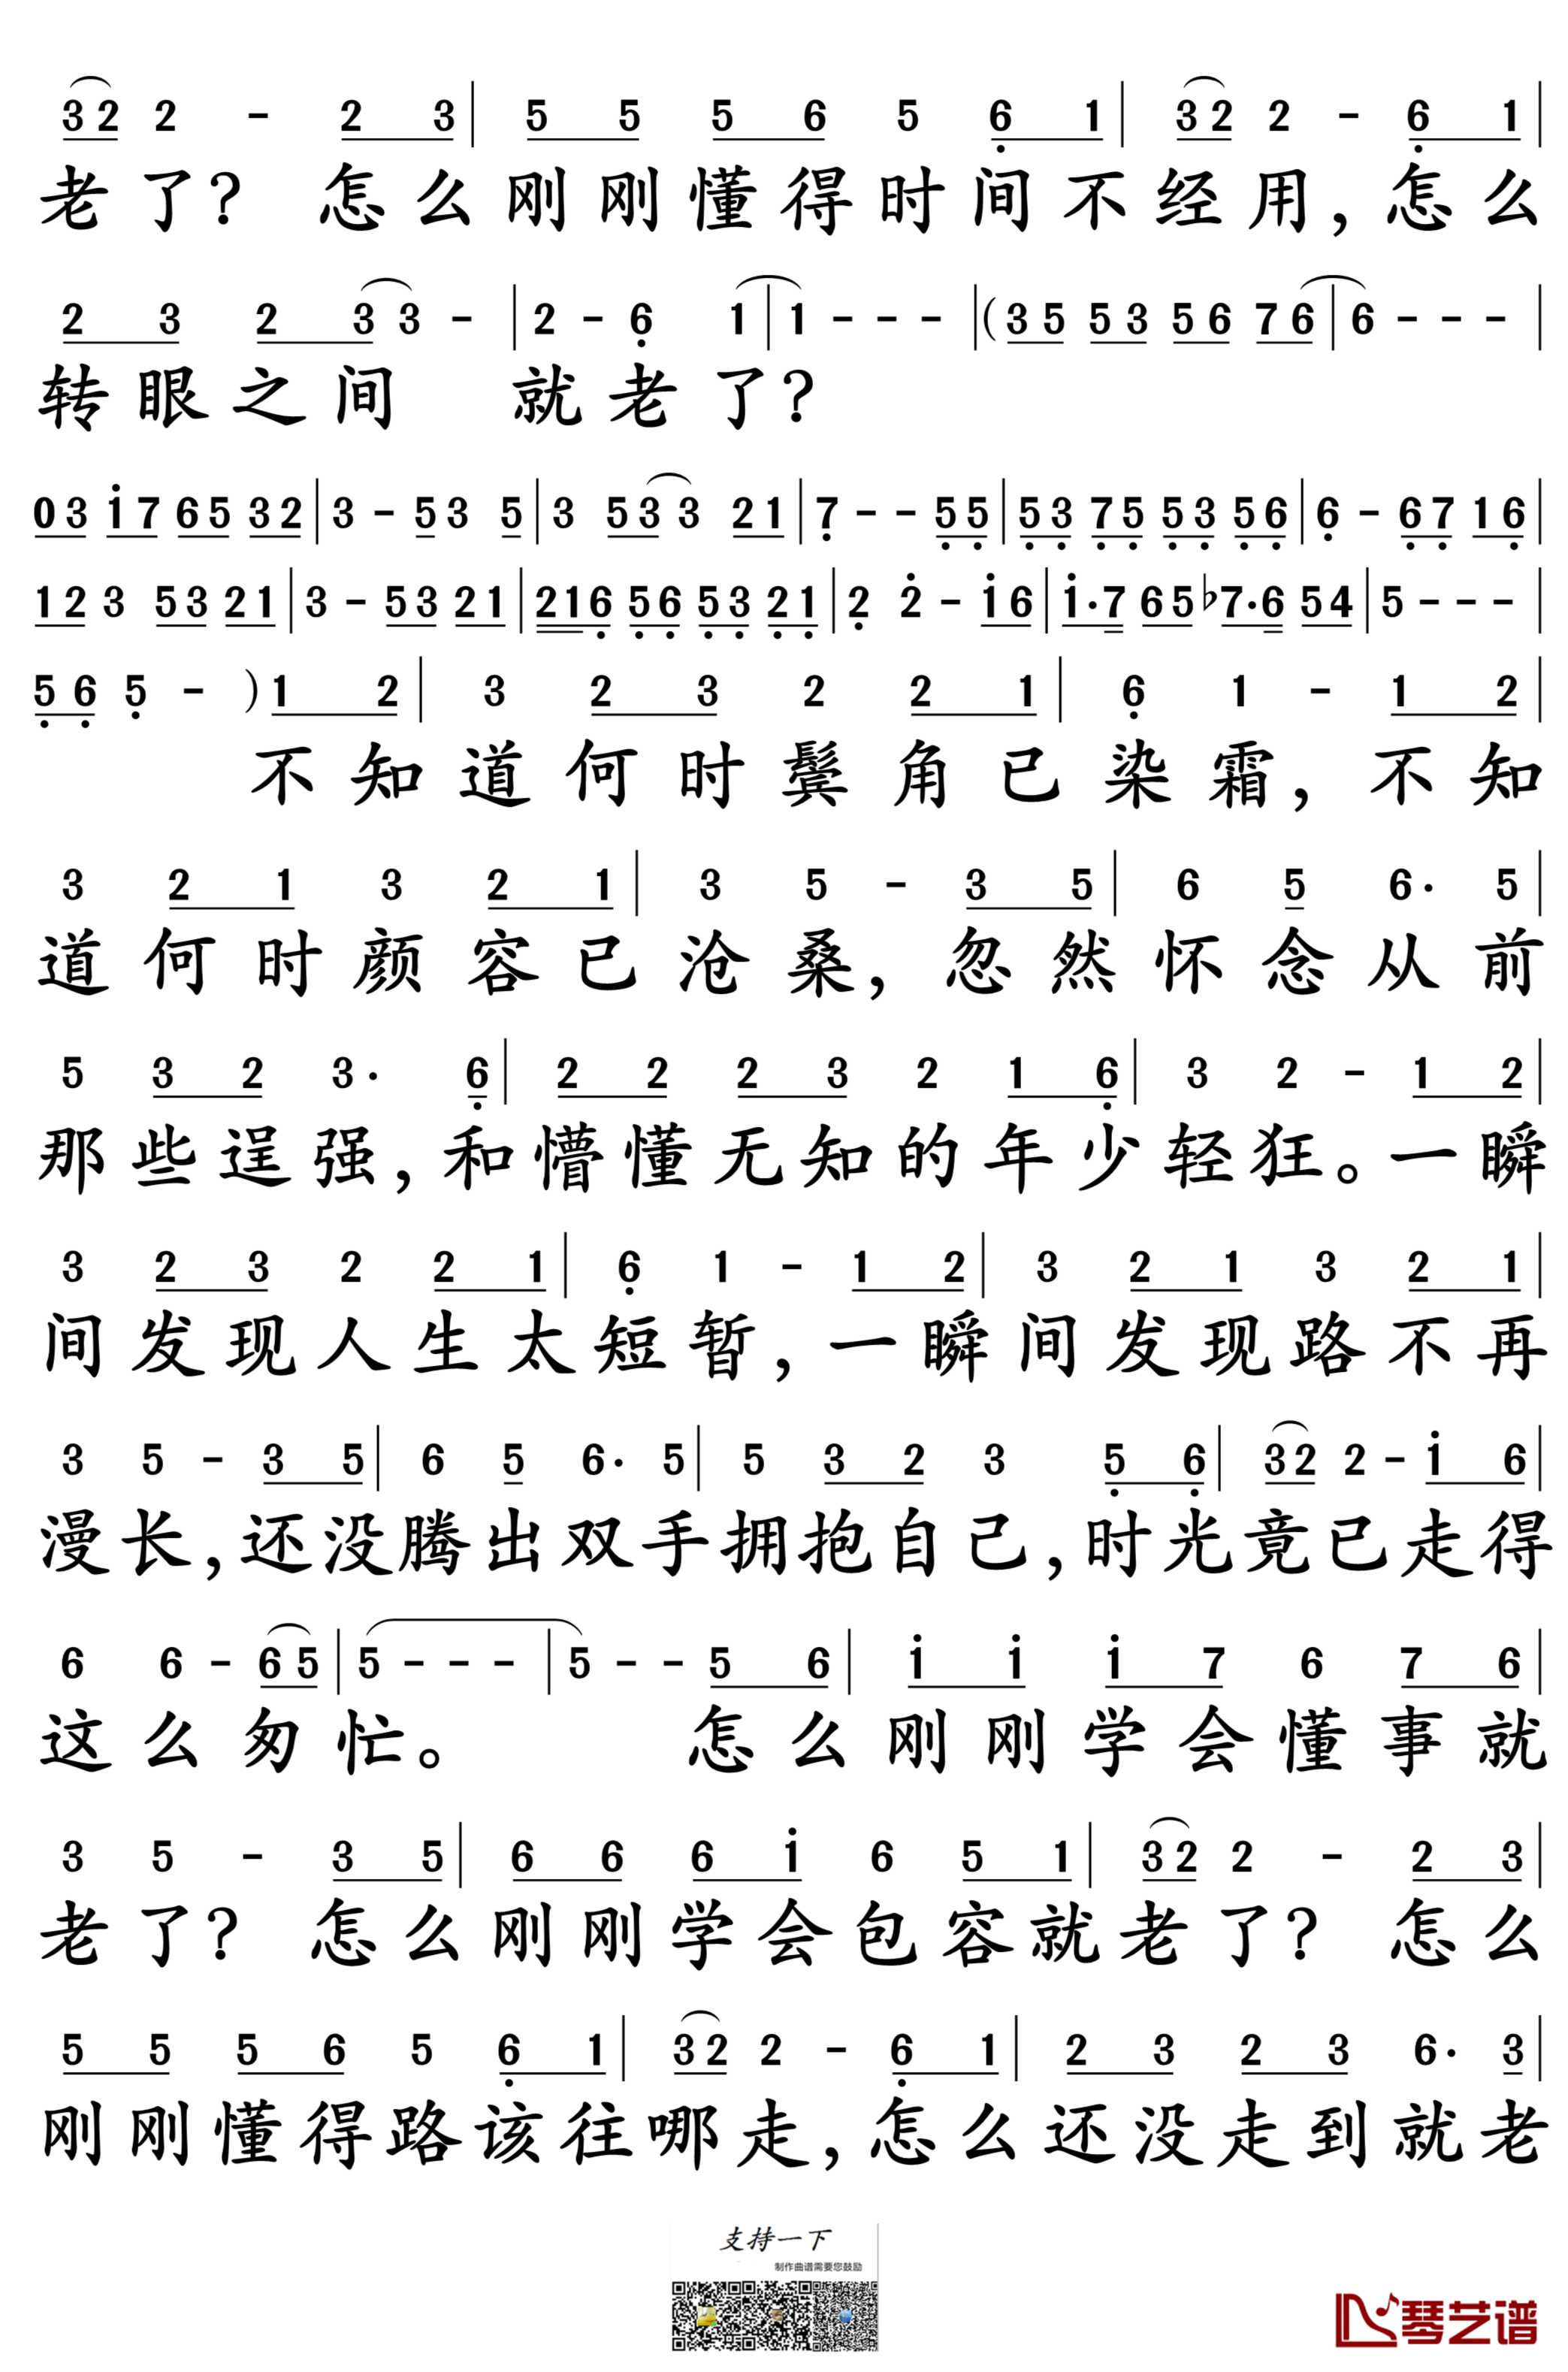 3 2 2 - 2 3 | 5 5 5 6 5 6̣ 1 | 3 2 2 - 6̣ 1 |
老了? 怎么刚刚懂得时间不经用,怎么
2 3 2 3 3 - | 2 - 6̣ 1 | 1 - - - | (3 5 5 3 5 6 7 6 | 6 - - - |
转眼之间 就老了?
0 3 i 7 6 5 3 2 | 3 - 5 3 5 | 3 5 3 3 2 1 | 7̣ - - 5̣ 5̣ | 5̣ 3̣ 7̣ 5̣ 5̣ 3̣ 5̣ 6̣ | 6̣ - 6̣ 7̣ 1 6̣ |
1 2 3 5 3 2 1 | 3 - 5 3 2 1 | 2 1 6̣ 5̣ 6̣ 5̣ 3̣ 2̣ 1̣ | 2̣ 2̇ - i 6 | i· 7 6 5 ♭7· 6 5 4 | 5 - - - |
5̣ 6̣ 5̣ - ) 1 2 | 3 2 3 2 2 1 | 6̣ 1 - 1 2 |
不知道何时鬓角已染霜,不知
3 2 1 3 2 1 | 3 5 - 3 5 | 6 5 6· 5 |
道何时颜容已沧桑,忽然怀念从前
5 3 2 3· 6̣ | 2 2 2 3 2 1 6̣ | 3 2 - 1 2 |
那些逞强,和懵懂无知的年少轻狂。一瞬
3 2 3 2 2 1 | 6̣ 1 - 1 2 | 3 2 1 3 2 1 |
间发现人生太短暂,一瞬间发现路不再
3 5 - 3 5 | 6 5 6· 5 | 5 3 2 3 5̣ 6̣ | 3 2 2 - i 6 |
漫长,还没腾出双手拥抱自己,时光竟已走得
6 6 - 6 5 | 5 - - - | 5 - - 5 6 | i i i 7 6 7 6 |
这么匆忙。 怎么刚刚学会懂事就
3 5 - 3 5 | 6 6 6 i 6 5 1 | 3 2 2 - 2 3 |
老了? 怎么刚刚学会包容就老了? 怎么
5 5 5 6 5 6̣ 1 | 3 2 2 - 6̣ 1 | 2 3 2 3 6· 3 |
刚刚懂得路该往哪走,怎么还没走到就老
支持一下
制作曲谱需要您鼓励
琴艺谱